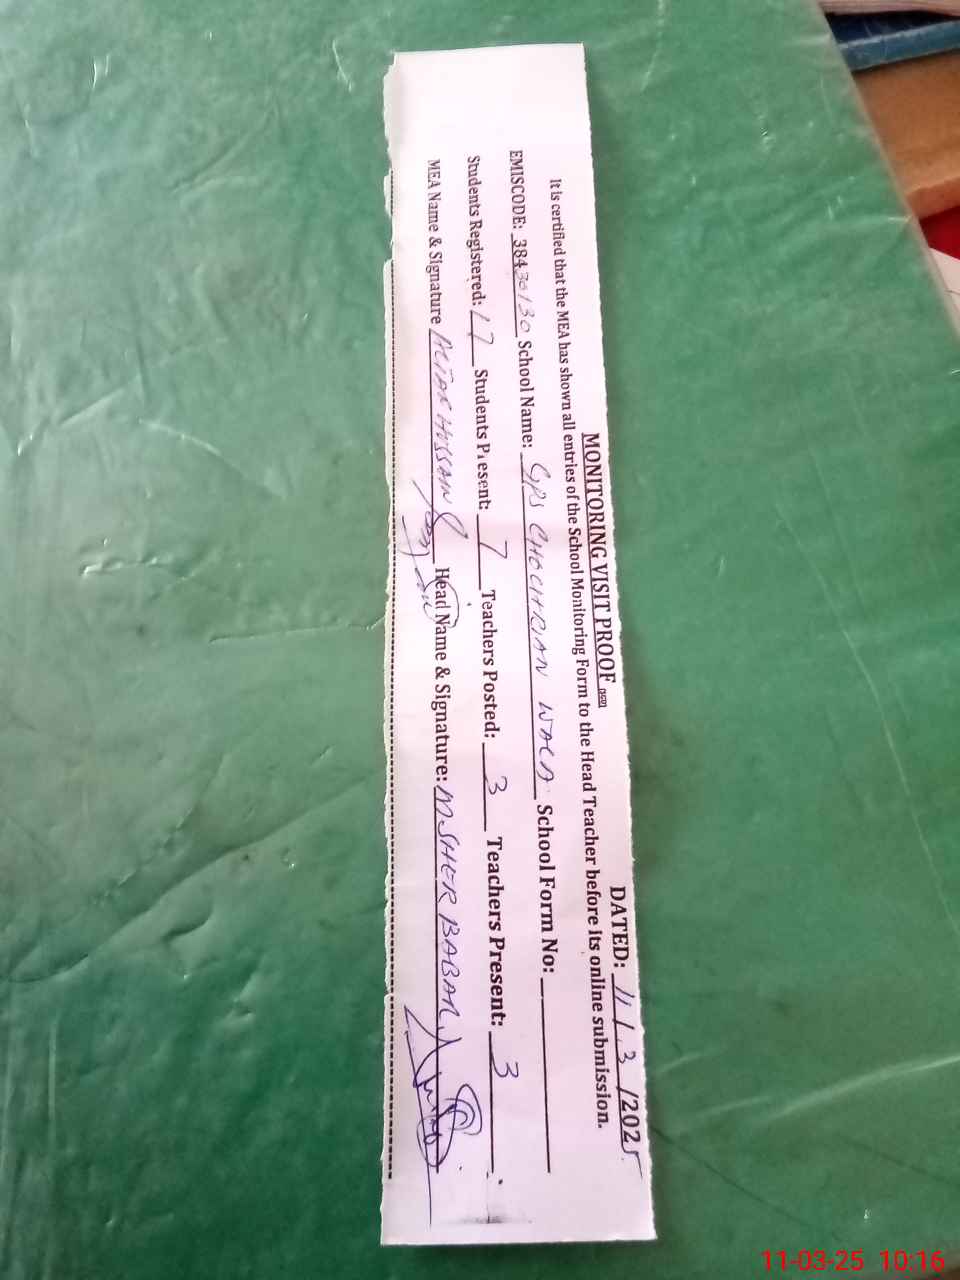 MONITORING VISIT PROOF DATED: 11/3/2025
It is certified that the MEA has shown all entries of the School Monitoring Form to the Head Teacher before its online submission.
EMISCODE: 38430130 School Name: GPS CHOCHRIAN WALA School Form No:
Students Registered: 17 Students Present: 7 Teachers Posted: 3 Teachers Present: 3
MEA Name & Signature ALTAR HUSSAIN Head Name & Signature: M SHER BABAR
11-03-25 10:16